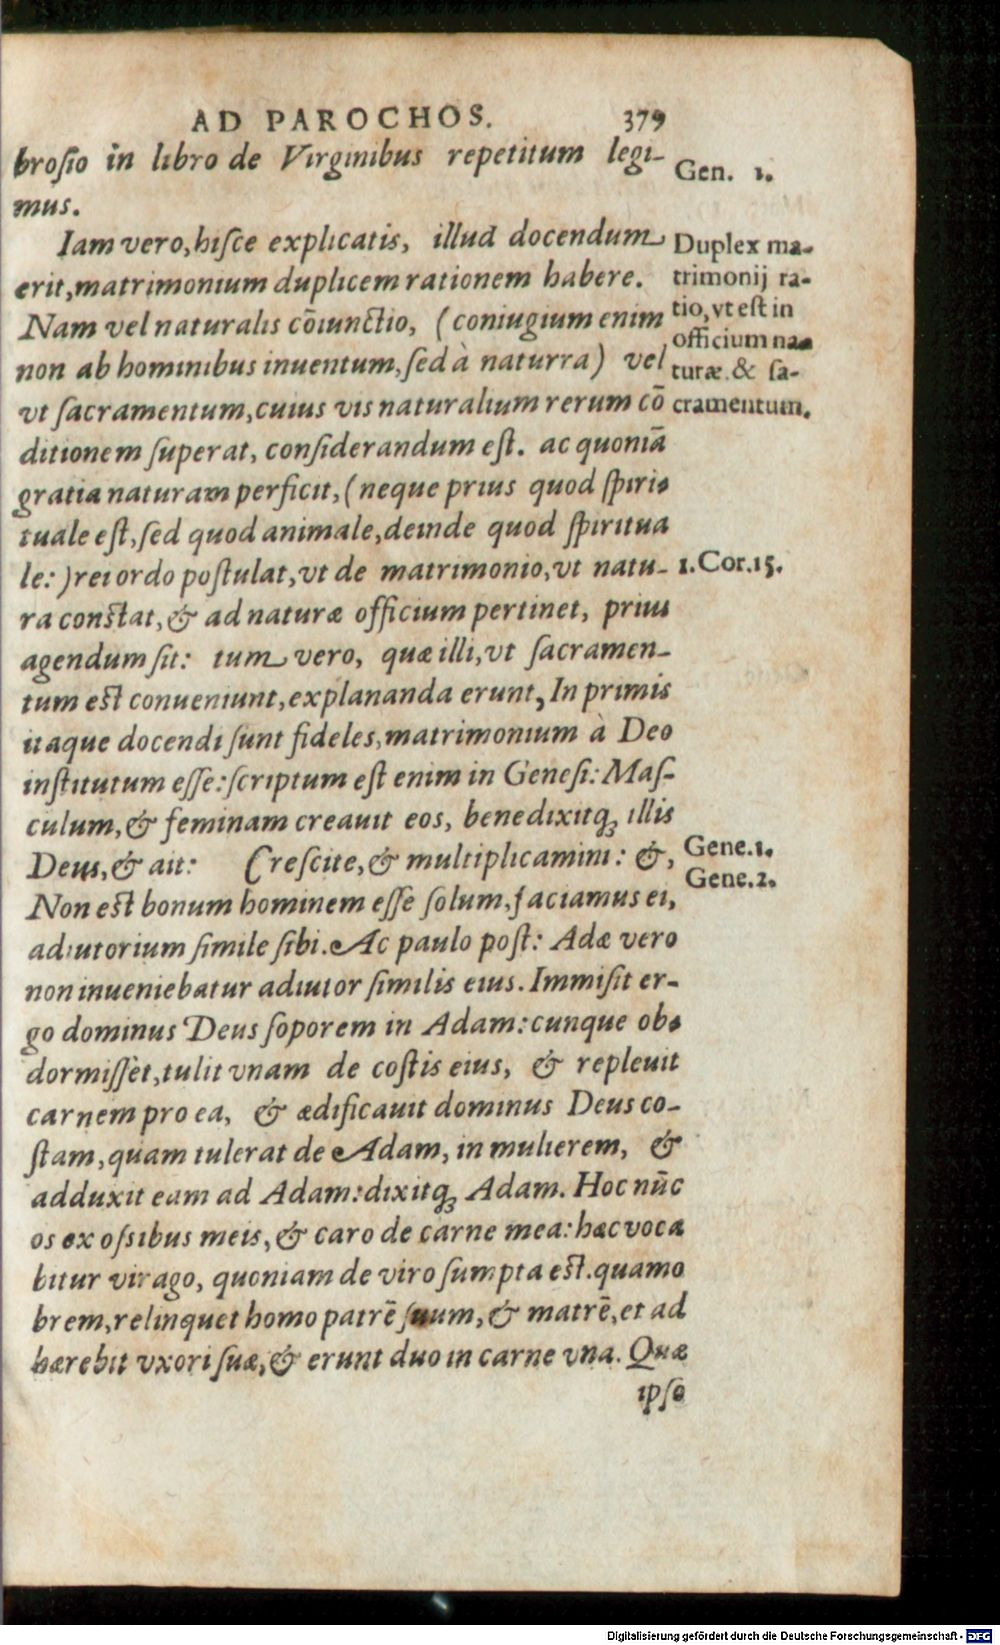 AD PAROCHOS. 379
broſio in libro de Virginibus repetitum legi-
mus.
Gen. 1.
Iam vero, hiſce explicatis, illud docendum
erit, matrimonium duplicem rationem habere.
Nam vel naturalis cōiunctio, (coniugium enim
non ab hominibus inuentum, ſed à naturra) vel
vt ſacramentum, cuius vis naturalium rerum cō
ditionem ſuperat, conſiderandum eſt. ac quoniā
gratia naturam perficit, (neque prius quod ſpiri-
tuale eſt, ſed quod animale, deinde quod ſpiritua
le:) rei ordo poſtulat, vt de matrimonio, vt natu-
ra conſtat, & ad naturæ officium pertinet, prius
agendum ſit: tum vero, quæ illi, vt ſacramen-
tum eſt conueniunt, explananda erunt, In primis
itaque docendi ſunt fideles, matrimonium à Deo
inſtitutum eſſe: ſcriptum eſt enim in Geneſi: Maſ-
culum, & feminam creauit eos, benedixitq; illis
Deus, & ait: Creſcite, & multiplicamini: &,
Non eſt bonum hominem eſſe ſolum, faciamus ei,
adiutorium ſimile ſibi. Ac paulo poſt: Adæ vero
non inueniebatur adiutor ſimilis eius. Immiſit er-
go dominus Deus ſoporem in Adam: cunque ob-
dormiſſèt, tulit vnam de coſtis eius, & repleuit
carnem pro ea, & ædificauit dominus Deus co-
ſtam, quam tulerat de Adam, in mulierem, &
adduxit eam ad Adam: dixitq; Adam. Hoc nūc
os ex oſsibus meis, & caro de carne mea: hæc voca
bitur virago, quoniam de viro ſumpta eſt. quamo
brem, relinquet homo patrē ſuum, & matrē, et ad
hærebit vxori ſuæ, & erunt duo in carne vna. Quæ
ipſo
Duplex ma-
trimonij ra-
tio, vt eſt in
officium na-
turæ. & ſa-
cramentum.
1. Cor. 15.
Gene. 1.
Gene. 2.
Digitalisierung gefördert durch die Deutsche Forschungsgemeinschaft - DFG